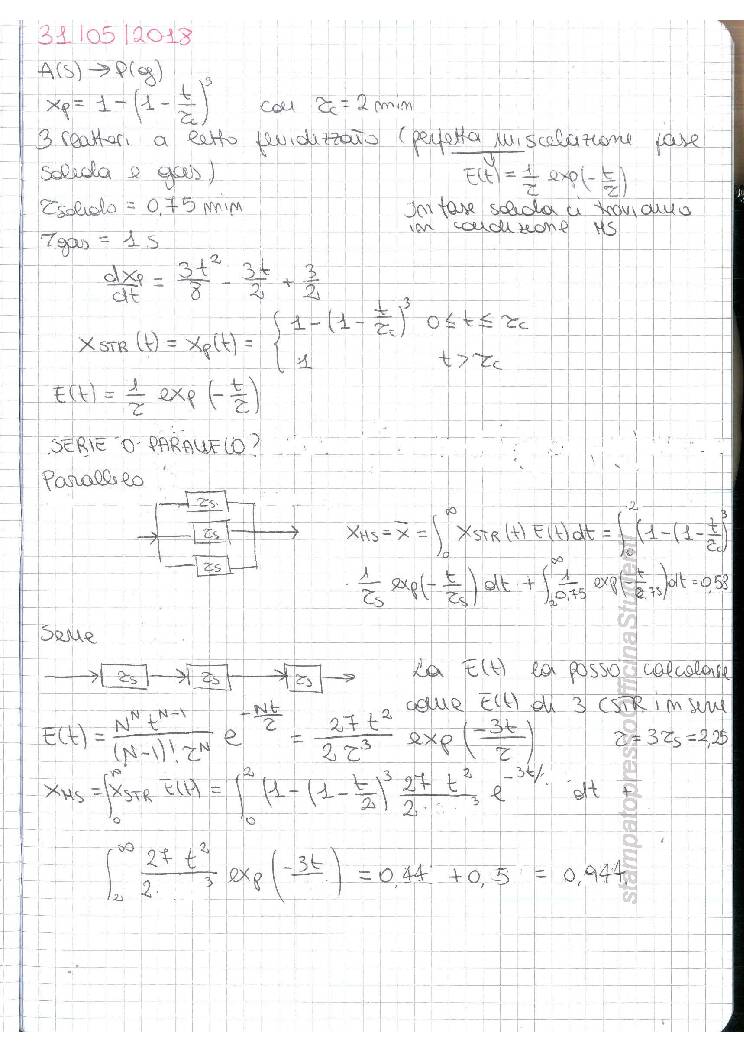 31/05/2018
A(s) → P(g)
xp = 1 − (1 − t/τc)³ con τc = 2 min
3 reattori a letto fluidizzato (perfetta miscelazione fase
solida e gas)
E(t) = 1/τ exp(−t/τ)
τsolido = 0,75 min
In fase solida ci troviamo
in condizione MS
τgas = 1 s
dxp/dt = 3t²/8 − 3t/2 + 3/2
XSTR(t) = xp(t) = { 1 − (1 − t/τc)³ 0 ≤ t ≤ τc
1 t > τc
E(t) = 1/τ exp(−t/τ)
SERIE O PARALLELO?
Parallelo
τs
τs
τs
XMS = x̄ = ∫₀^∞ XSTR(t) E(t) dt = ∫₀² (1 − (1 − t/τc)³
· 1/τs exp(−t/τs) dt + ∫₂^∞ 1/0,75 exp(t/0,75) dt = 0,58
Serie
τs τs τs
La E(t) la posso calcolare
come E(t) di 3 CSTR in serie
E(t) = N^N t^(N−1) / (N−1)! τ^N e^(−Nt/τ) = 27 t² / 2 τ³ exp(−3t/τ) τ = 3τs = 2,25
XMS = ∫₀^∞ XSTR E(t) = ∫₀² (1 − (1 − t/2)³ 27 t² / 2· ³ e^(−3t/· dt +
∫₂^∞ 27 t² / 2· ³ exp(−3t/ ) = 0,44 + 0,5 = 0,944
stampatopressoOfficinaStudenti